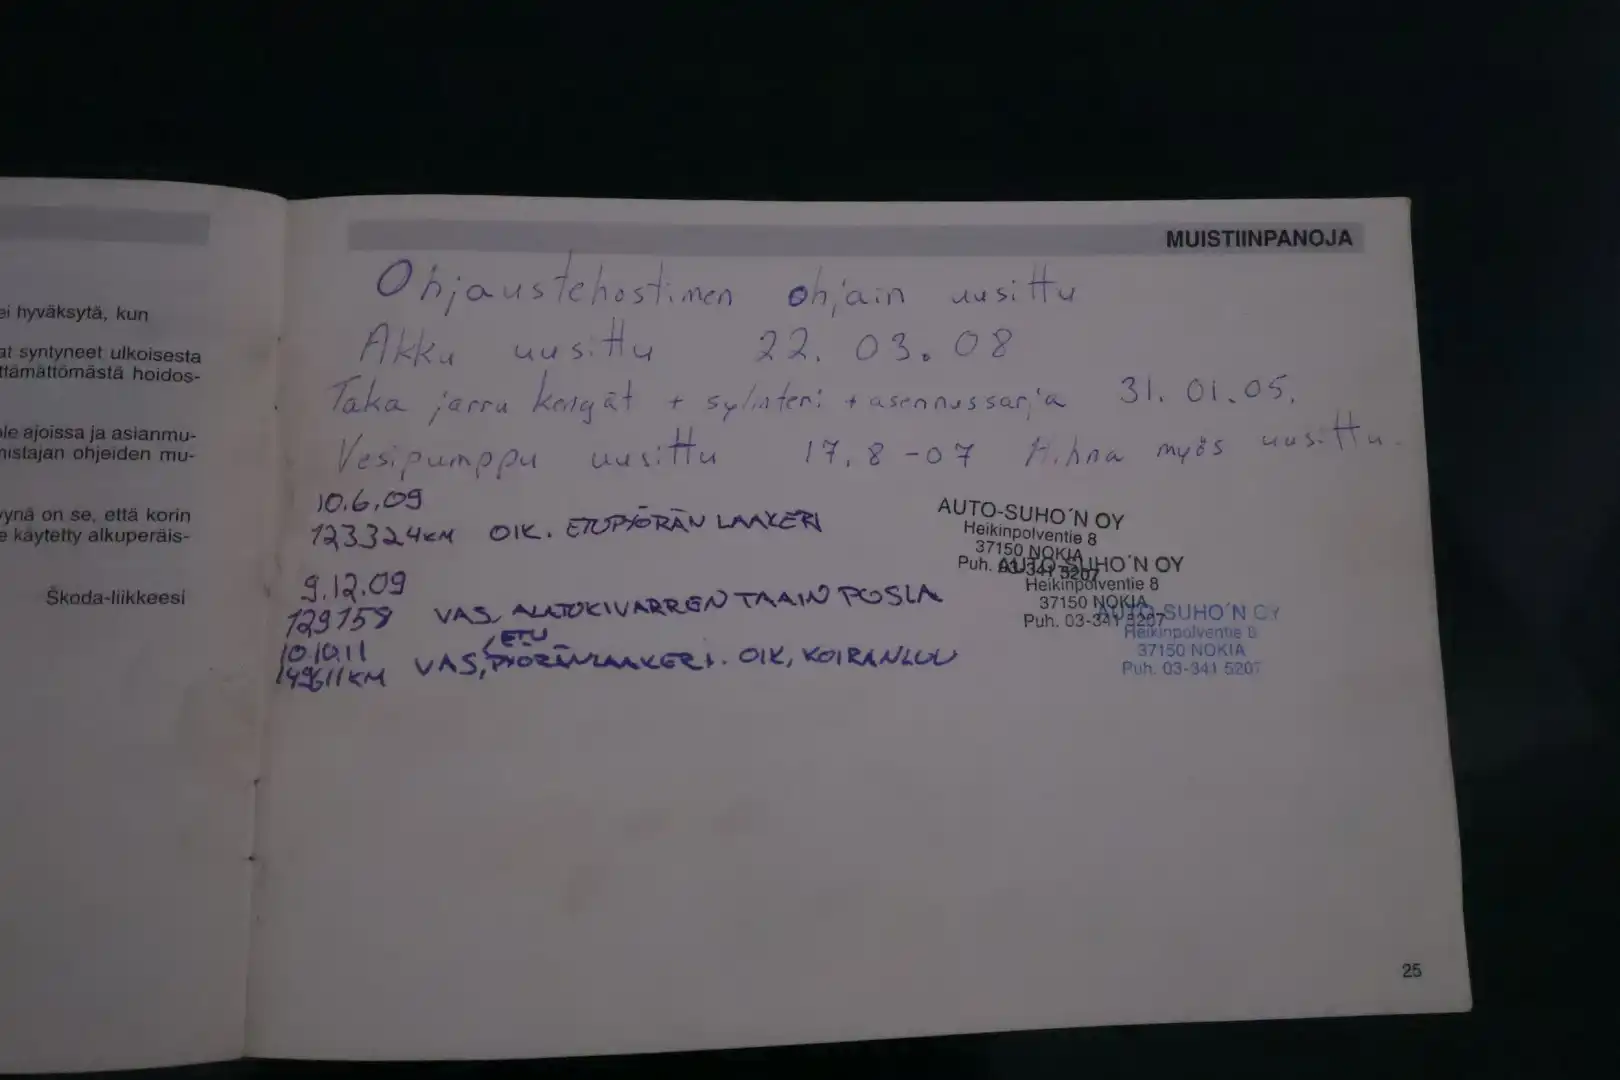 ei hyväksytä, kun
at syntyneet ulkoisesta
ttämättömästä hoidos-
ole ajoissa ja asianmu-
mistajan ohjeiden mu-
yynä on se, että korin
e käytetty alkuperäis-
Škoda-liikkeesi
MUISTIINPANOJA
Ohjaustehostimen ohjain uusittu
Akku uusittu 22. 03. 08
Taka jarru kengät + sylinteri + asennussarja 31. 01. 05.
Vesipumppu uusittu 17. 8 -07 Hihna myös uusittu.
10.6.09
123324KM OIK. ETUPYÖRÄN LAAKERI
9.12.09
129158 VAS. ALATUKIVARREN TAAIN PUSLA
10.10.11
149611KM VAS, ETU PYÖRÄNLAAKERI. OIK, KOIRANLUU
AUTO-SUHO´N OY
Heikinpolventie 8
37150 NOKIA
Puh. 03-341 5207
AUTO-SUHO´N OY
Heikinpolventie 8
37150 NOKIA
Puh. 03-341 5207
AUTO-SUHO´N OY
Heikinpolventie 8
37150 NOKIA
Puh. 03-341 5207
25